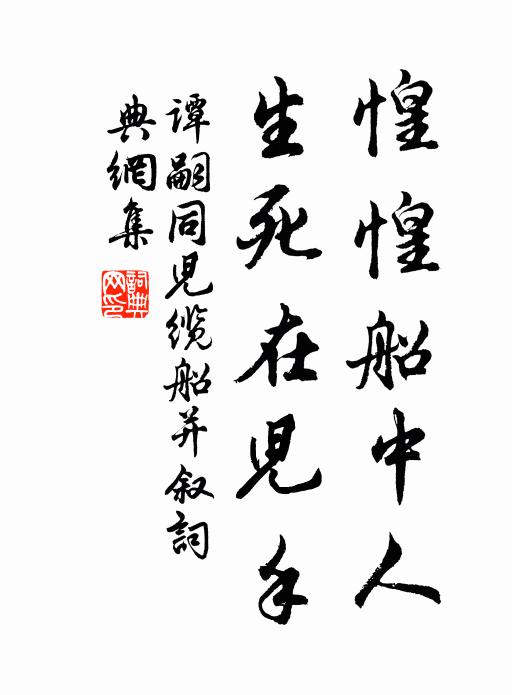 惶惶船中人
生死在児手
谭嗣同児缆船并叙詞
典網集
詞典
网印